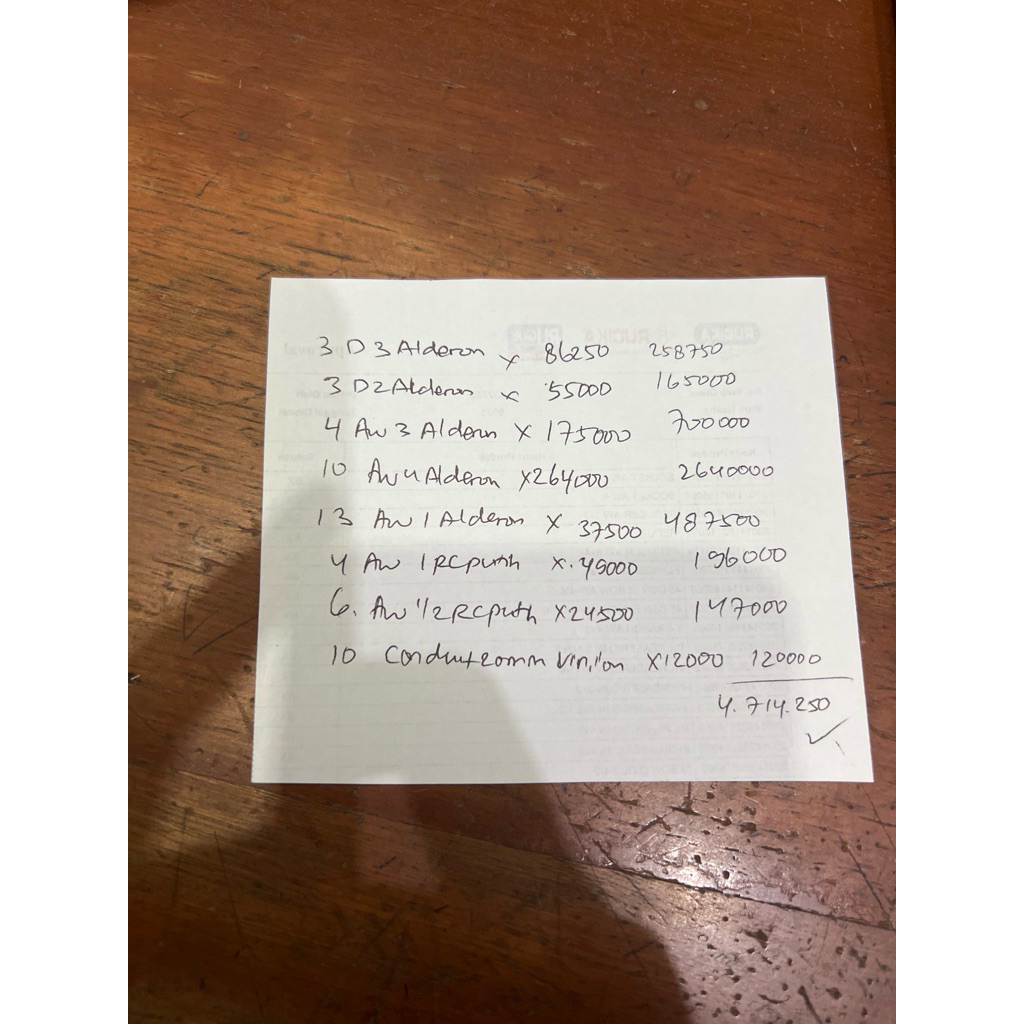 3 D 3 Alderon x 86250 258750
3 D2 Alderon x 55000 165000
4 Aw 3 Alderon x 175000 700000
10 Aw 4 Alderon x 264000 2640000
13 Aw 1 Alderon x 37500 487500
4 Aw 1 RC putih x 49000 196000
6. Aw 1/2 RC putih x 24500 147000
10 Conduit 20mm Vinilon x 12000 120000
4.714.250